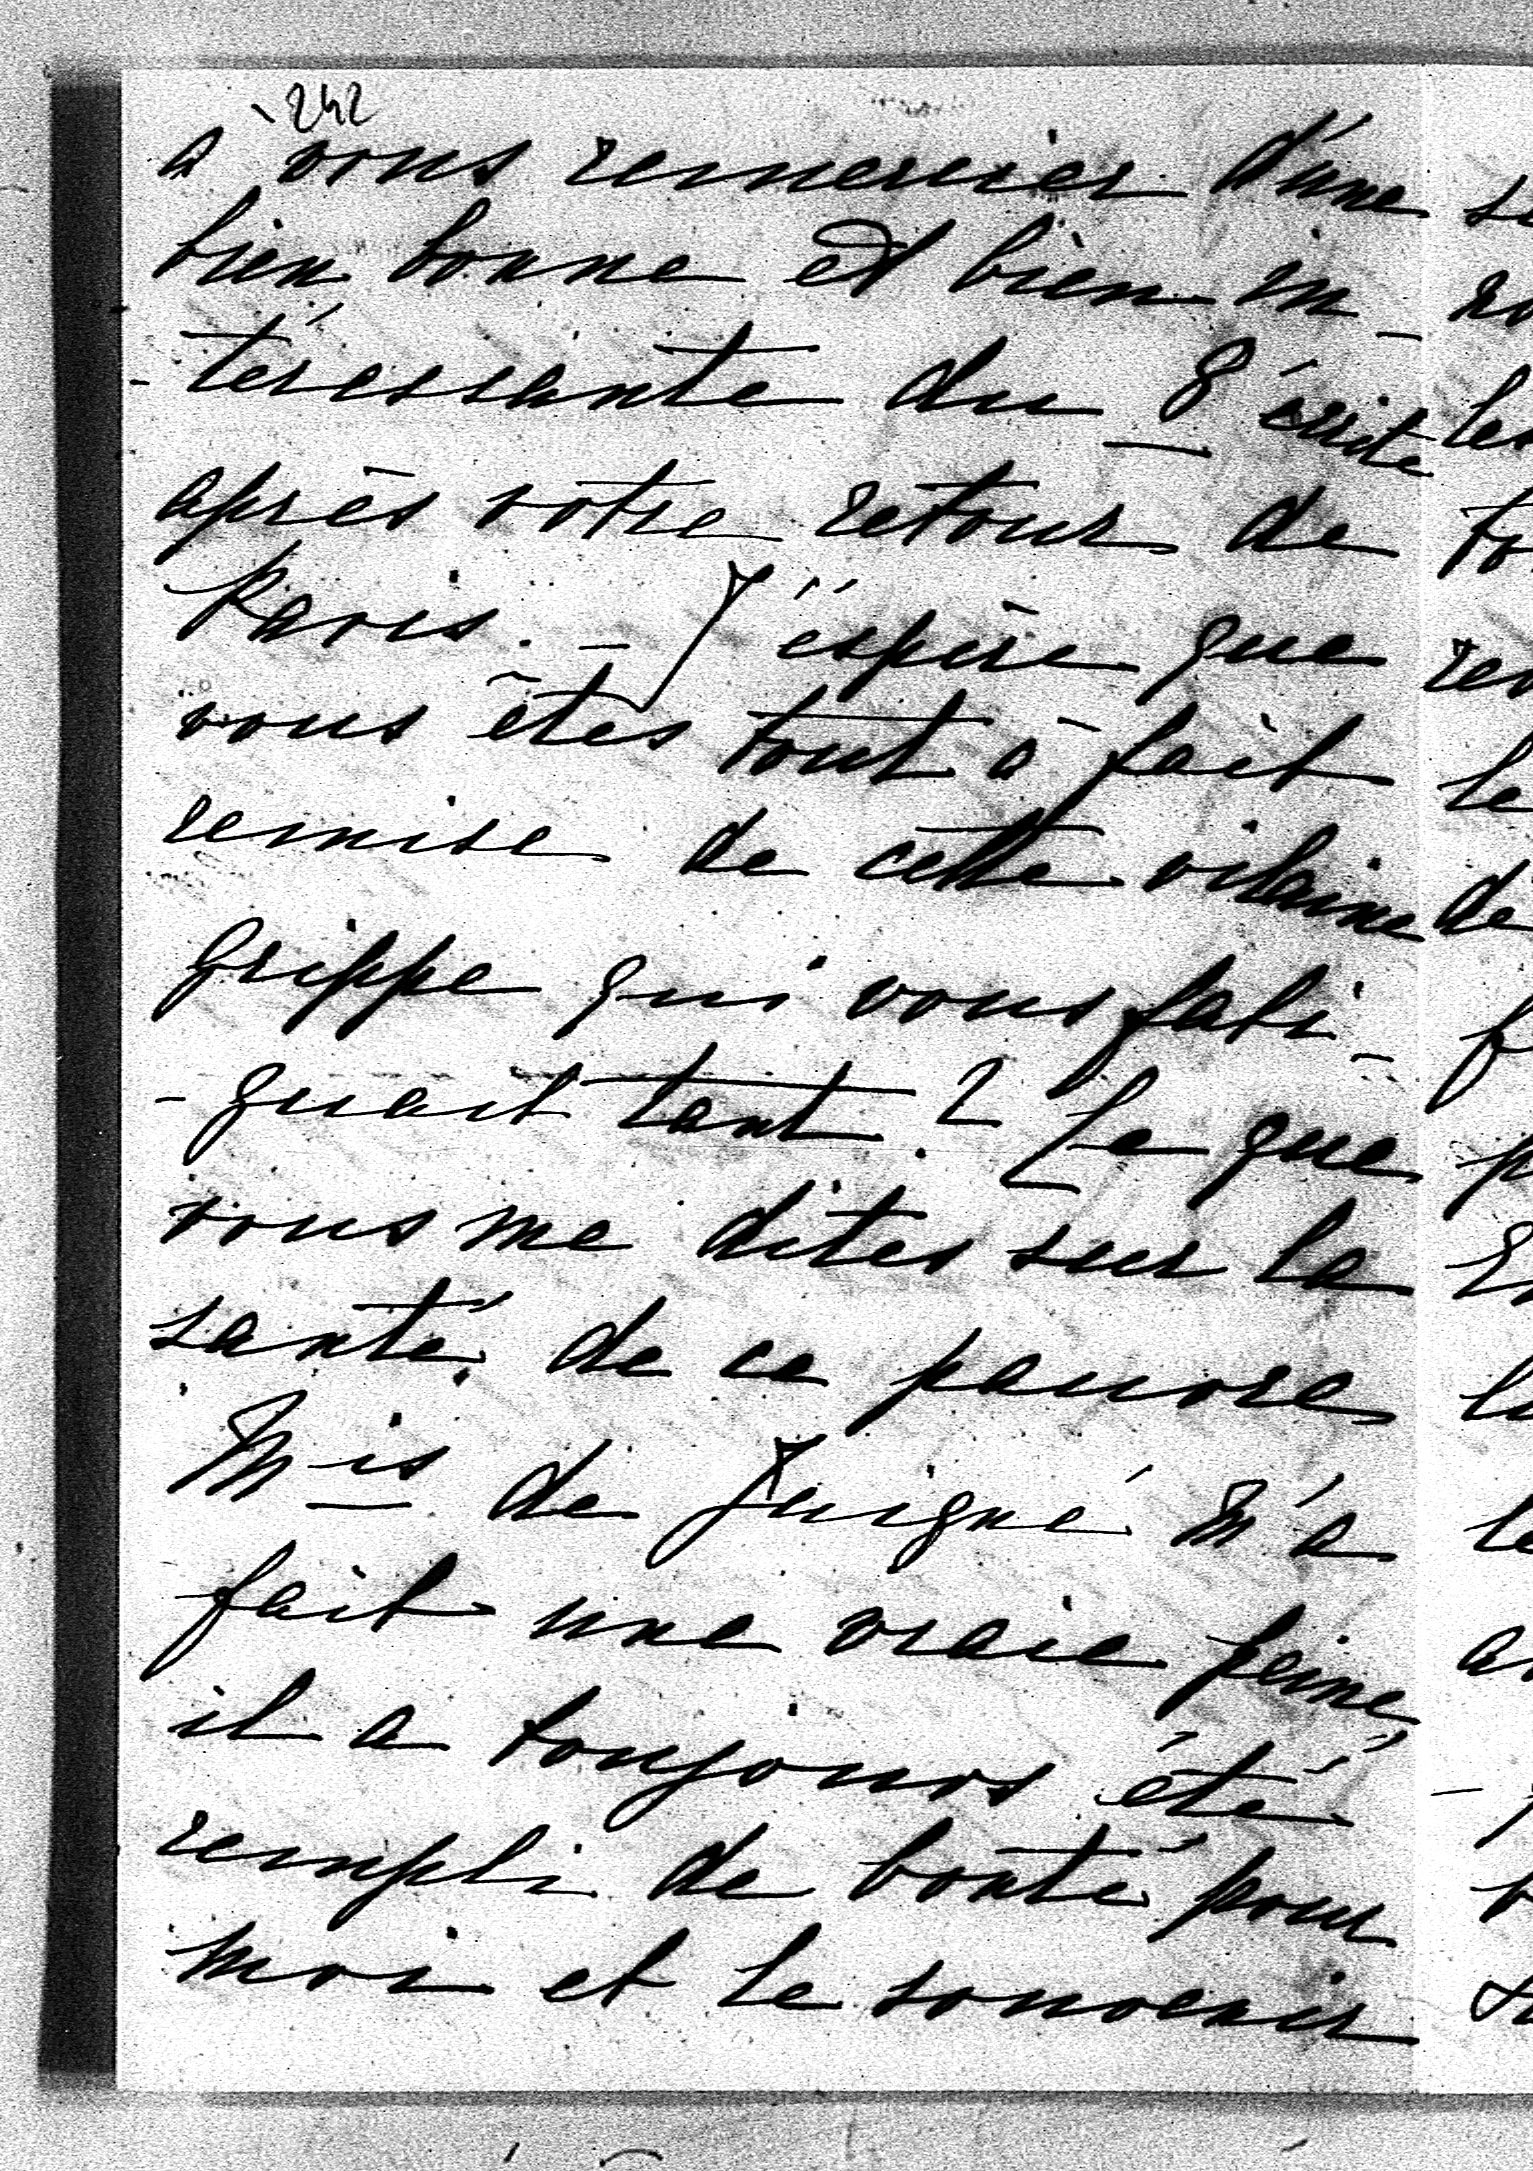 242
à vous remercier d'une
bien bonne et bien in-
-téressante du 8 écrite
après votre retour de
Paris. — J'éspère que
vous êtes tout à fait
remise de cette vilaine
grippe qui vous fati-
-guait tant? Ce que
vous me dites sur la
santé de ce pauvre
Mis de Juigné m'a
fait une vraie peine,
il a toujours été
rempli de bonté pour
moi et le souvenir